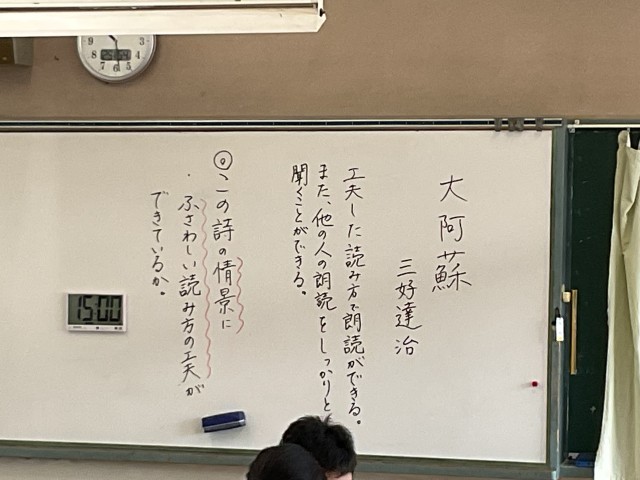 大阿蘇
三好達治
工夫した読み方で朗読ができる。
また、他の人の朗読をしっかりと
聞くことができる。
◎この詩の情景に
・ふさわしい読み方の工夫が
できているか。
15:00
9
8
7
6
5
4
3